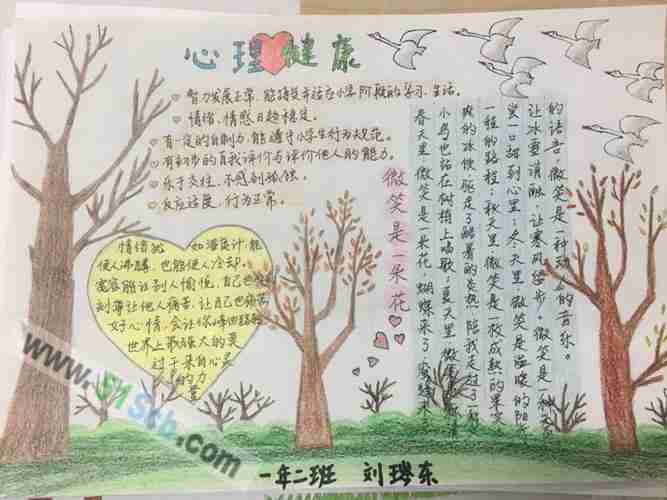 心理健康
智力发展正常,能接受并适应小学阶段的学习、生活。
情绪、情感日趋稳定。
有一定的自制力,能遵守小学生行为规范。
有初步的自我评价与评价他人的能力。
乐于交往,不感到孤独。
反应适度,行为正常。
微笑是一朵花
春天里,微笑是一朵花,蝴蝶来了,蜜蜂来
小鸟也站在树梢上唱歌;夏天里,微笑是
爽的冰傻,驱走了酷暑的炎热,陪我走过了一
程的路程;秋天里,微笑是一枚成熟的果实
尝一口,甜到心里;冬天里,微笑是温暖的阳
让冰雪消融,让寒风停步。微笑是一种
的语言,微笑是一种动人的音弦。
情绪就 如温度计,能
使人沸腾,也能使人冷却,
宽容能让别人愉悦,自己也
刻薄让他人痛苦,让自己也
好心情,会让你
世界上最强大的
过于来自心灵
的力
量
一年二班 刘琤东
www.51Scb.com